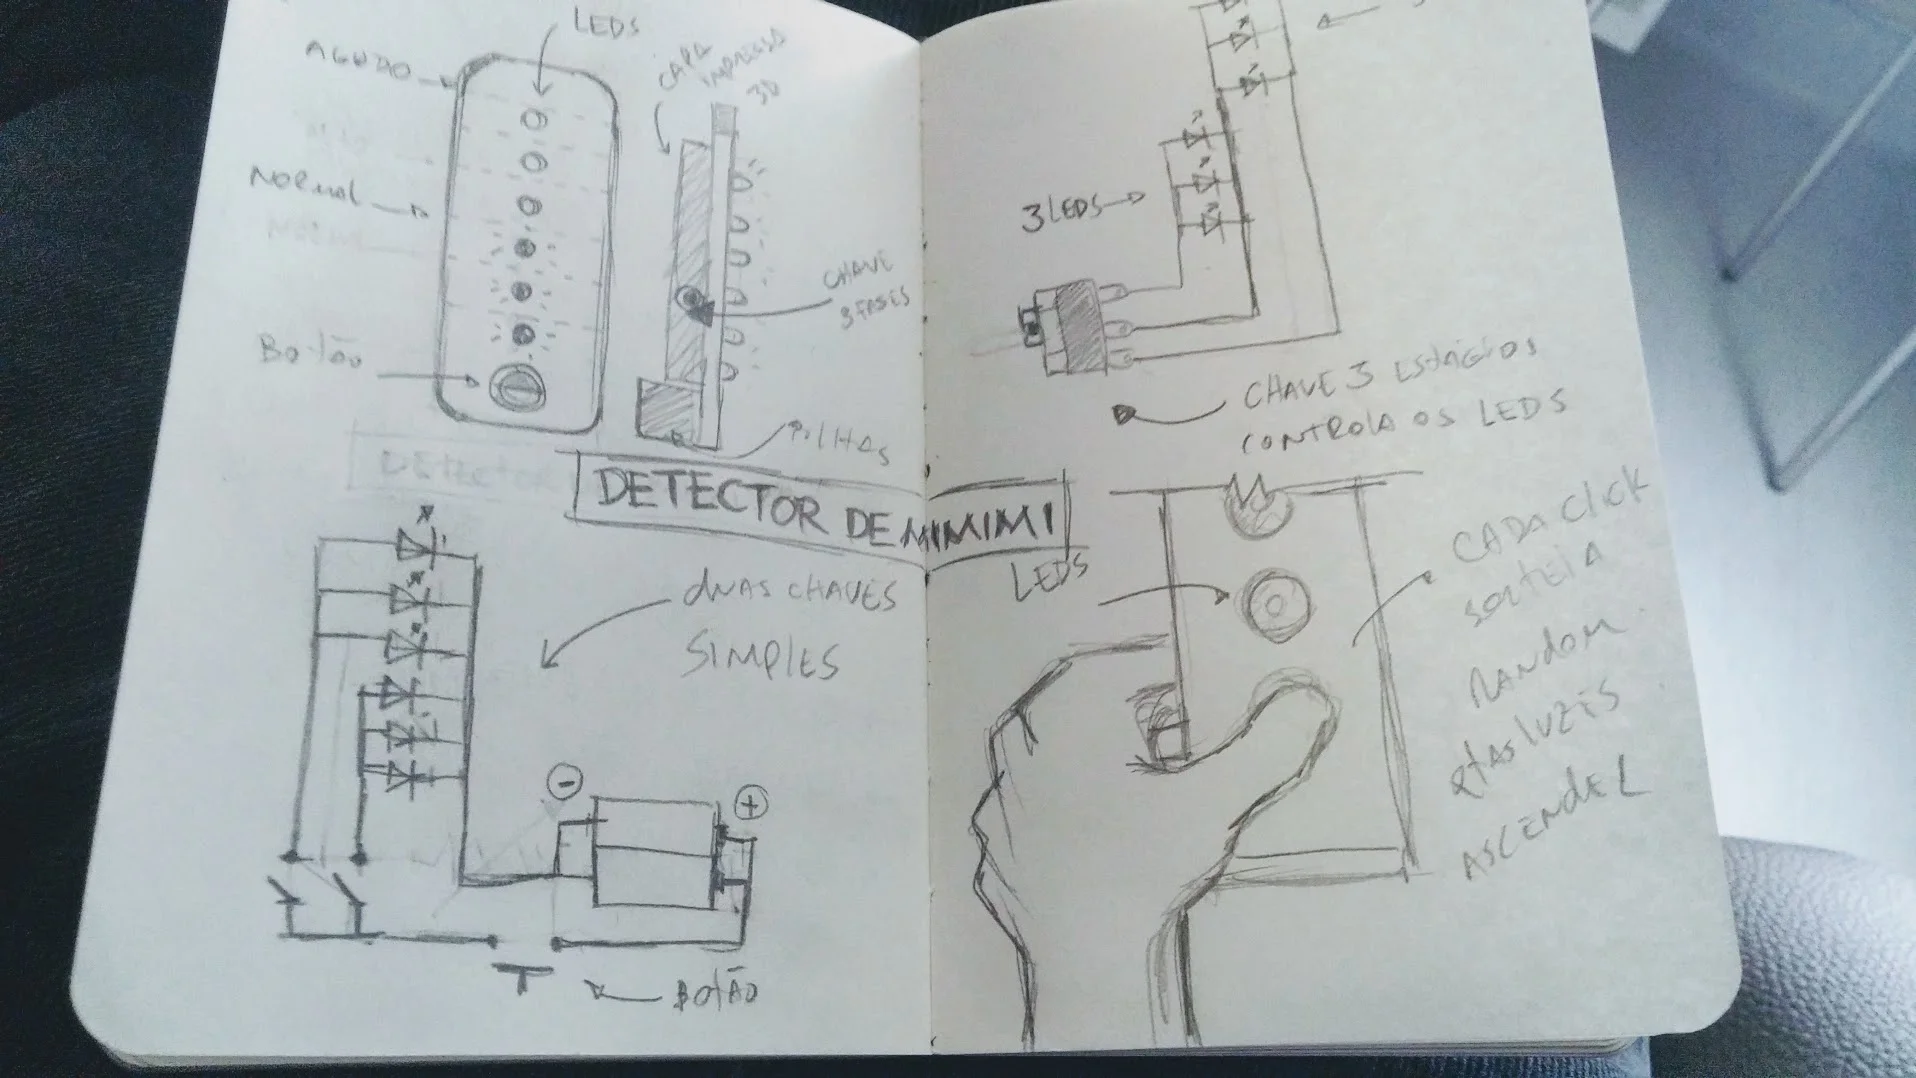 LEDS
AGUDO
CAPA
IMPRESSA
3D
NORMAL
CHAVE
3 FASES
BOTÃO
PILHAS
3 LEDS
CHAVE 3 ESTÁGIOS
CONTROLA OS LEDS
DETECTOR
DETECTOR DE MIMIMI
DUAS CHAVES
SIMPLES
BOTÃO
LEDS
CADA CLICK
SORTEIA
RANDOM
ASCENDER